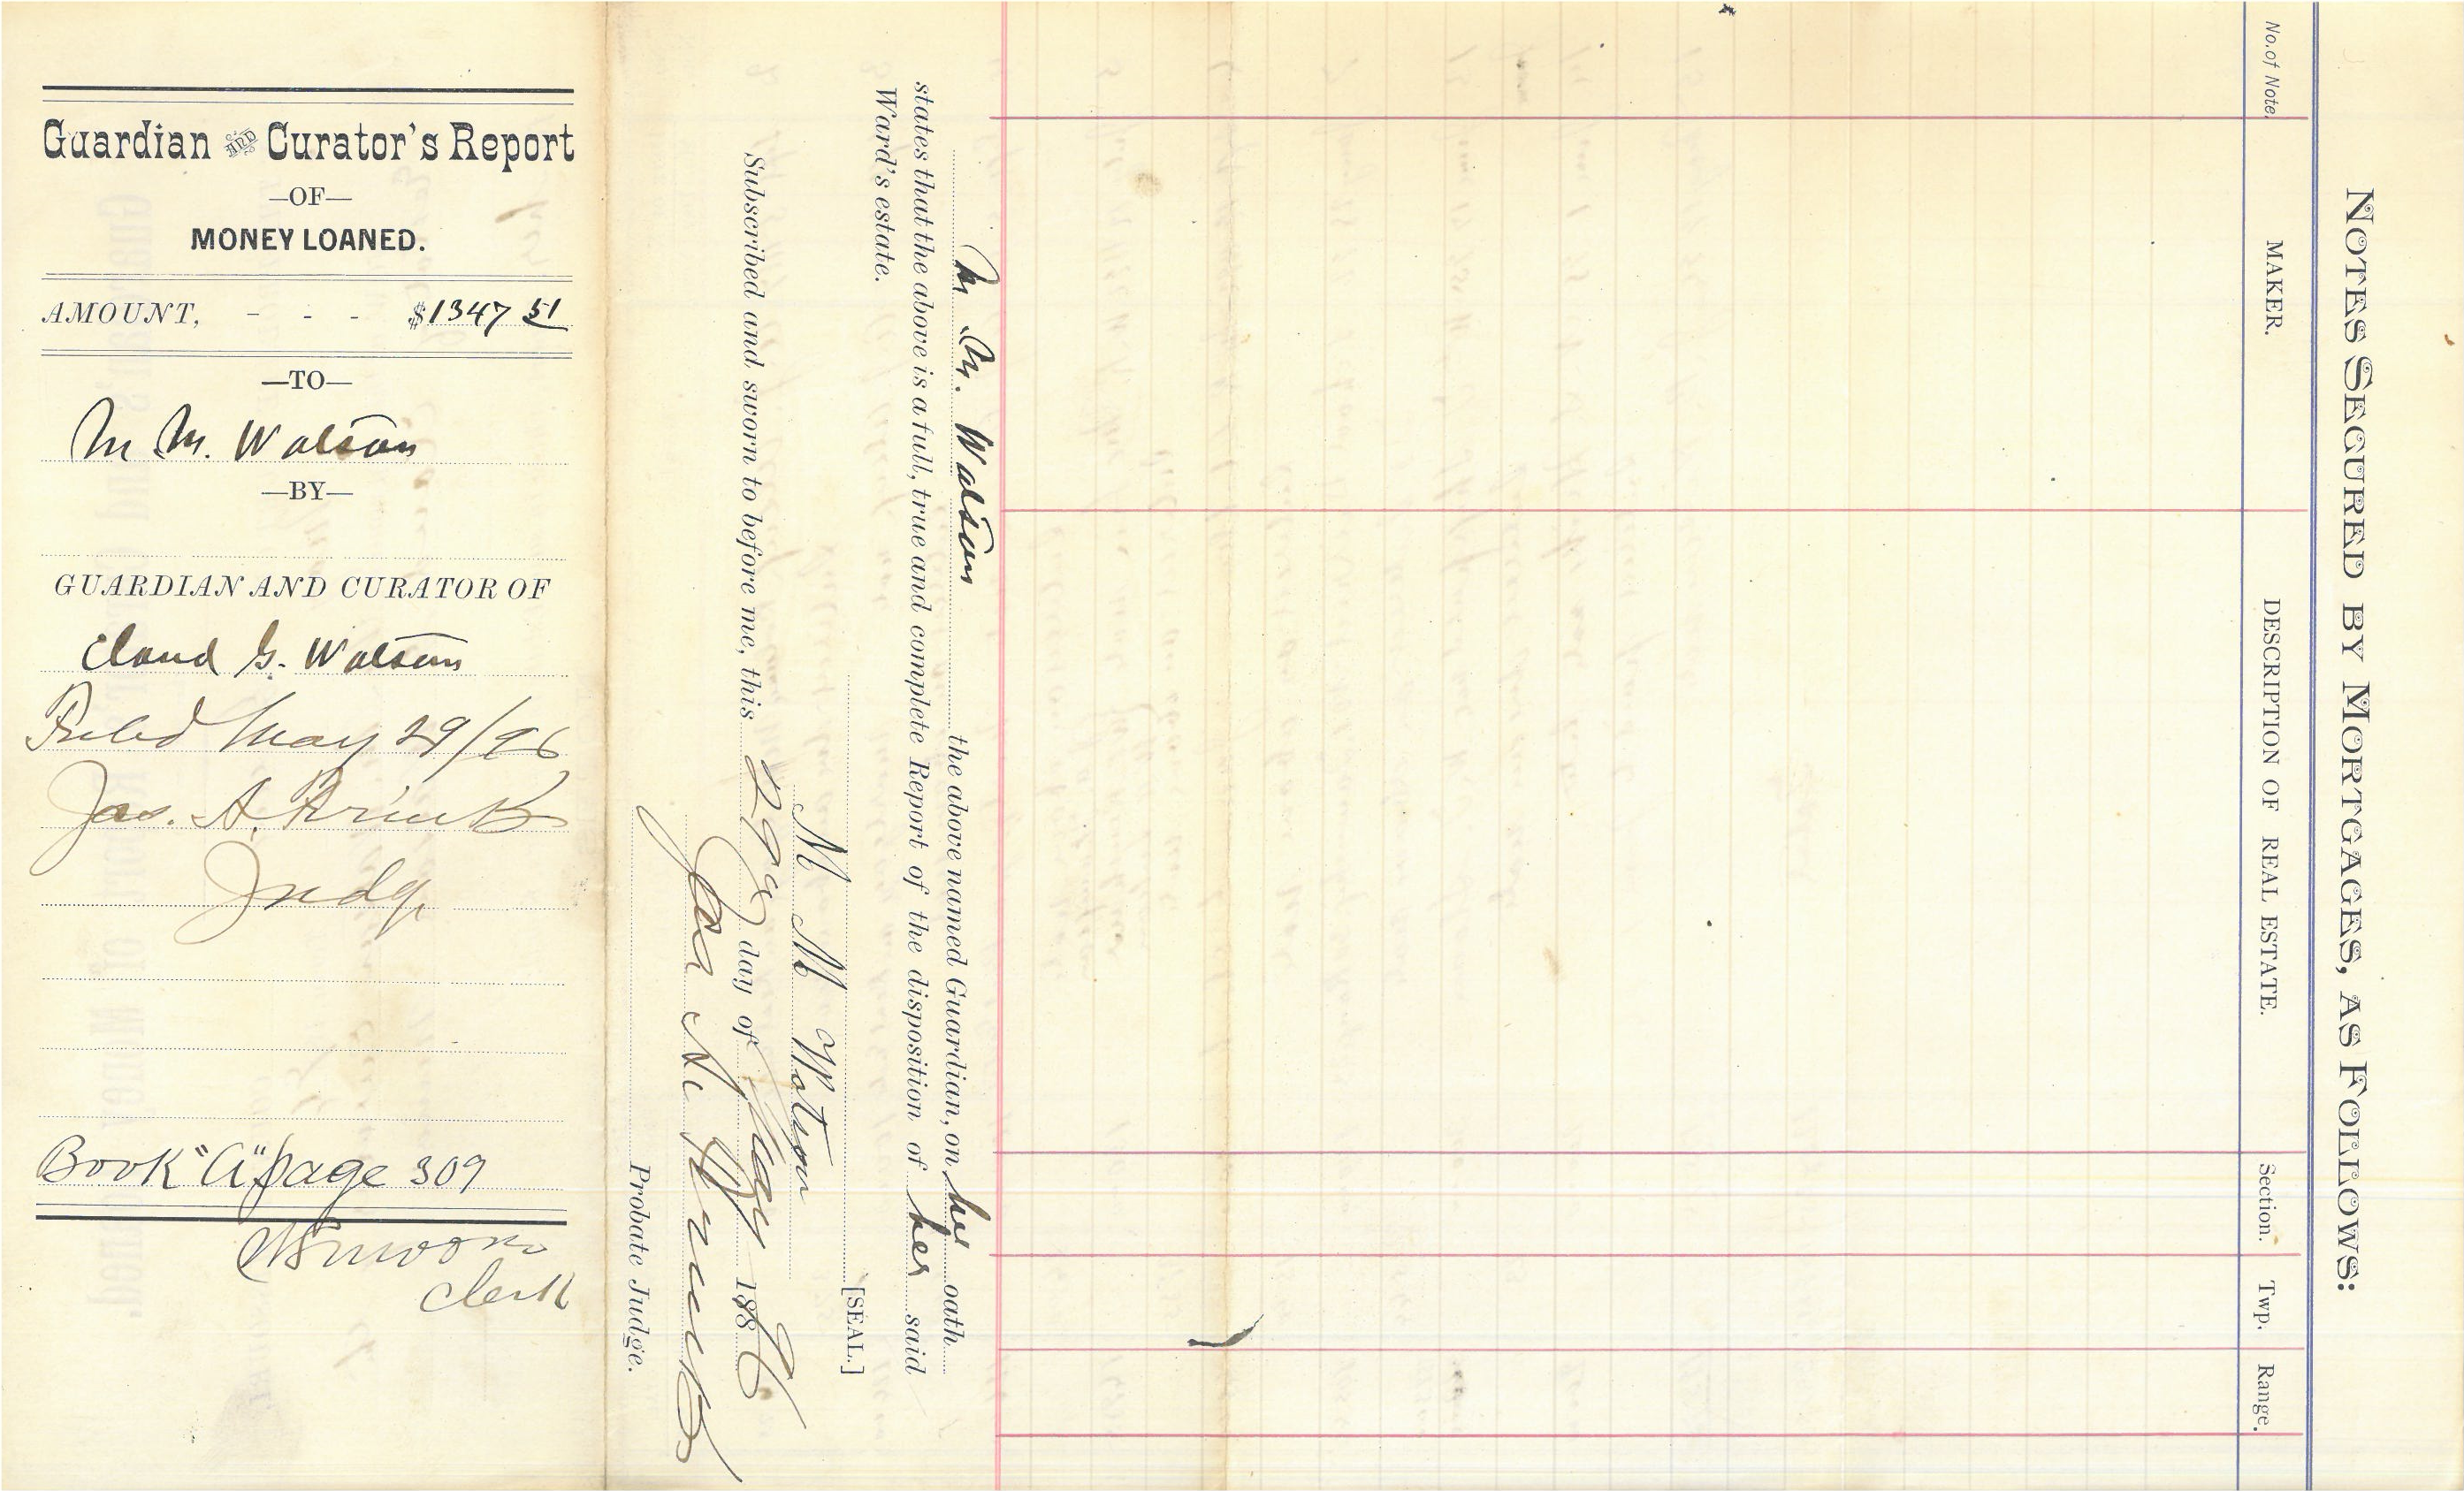 Guardian AND Curator's Report
—OF—
MONEY LOANED.
AMOUNT, - - - $1347 51
—TO—
M M. Watson
—BY—
GUARDIAN AND CURATOR OF
Claud G. Watson
Filed May 29/96
Jas. A.
Judge
Book "A" page 309
Clerk
NOTES SECURED BY MORTGAGES, AS FOLLOWS:
No. of Note. MAKER. DESCRIPTION OF REAL ESTATE. Section. Twp. Range.
M. M. Watson the above named Guardian, on her oath
states that the above is a full, true and complete Report of the disposition of her said
Ward's estate.
[SEAL.]
M M Watson
Subscribed and sworn to before me, this 29th day of May 1896
Jas A
Probate Judge.